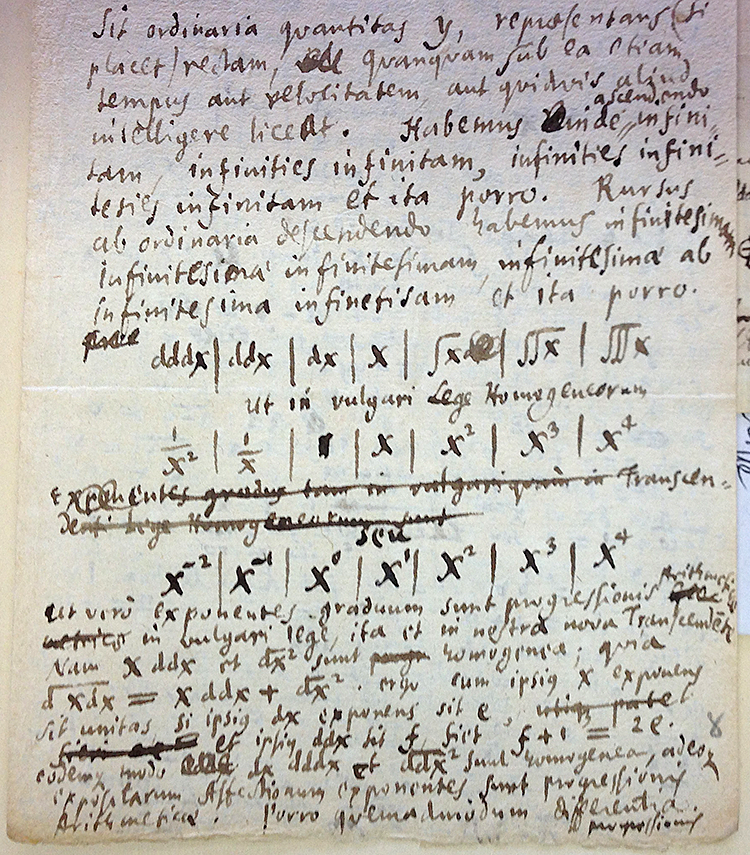 Sit ordinaria quantitas y, repræsentans (si
placet) rectam, quanquam sub ea etiam
tempus aut velocitatem, aut quidvis aliud
intelligere liceat. Habemus inde ascendendo infini-
tam, infinities infinitam, infinities infini-
ties infinitam et ita porro. Rursus
ab ordinaria descendendo habemus infinitesimam
infinitesimæ infinitesimam, infinitesimæ ab
infinitesima et ita porro.
dddx | ddx | dx | x | ∫x | ∫∫x | ∫∫∫x
Ut in vulgari Lege Homogeneorum
1/x² | 1/x | 1 | x | x² | x³ | x⁴
Exponentes gradus tam in vulgari quam in Transcen-
denti Lege Homogeneorum sunt
seu
x⁻² | x⁻¹ | x⁰ | x¹ | x² | x³ | x⁴
Ut vero exponentes graduum sunt progressionis Arithmeticæ
in vulgari lege, ita et in nostra nova Transcendente
Nam x ddx et dx² sunt homogenea; quia
d xdx = x ddx + dx². ergo cum ipsius x exponens
sit unitas, si ipsius dx exponens sit e,
et ipsius ddx sit f, fiet f+1 = 2e.
eodem modo dx dddx et ddx² sunt homogenea, adeoque
affectionum exponentes sunt progressionis
Arithmeticæ. Porro quemadmodum differentia
progressionis
8